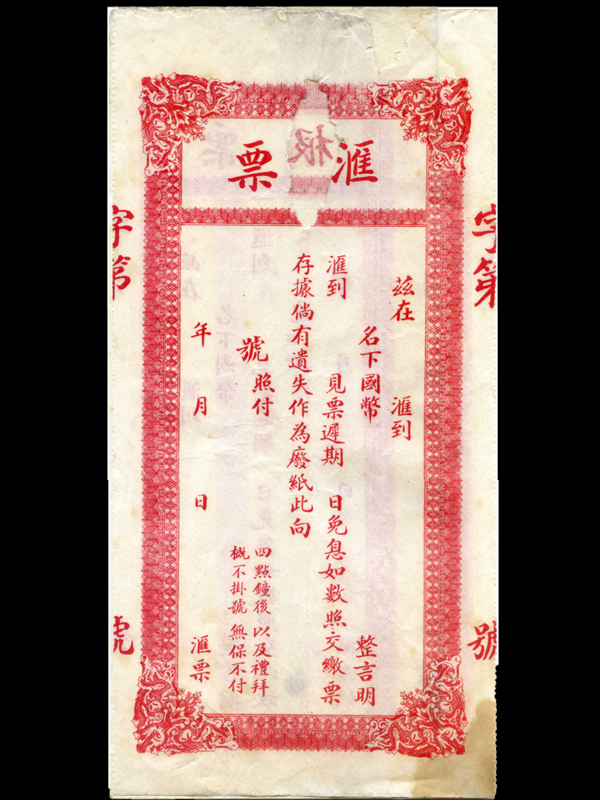 滙票
茲在 滙到
名下國幣 整言明
滙到 見票遲期 日免息如數照交繳票
存據倘有遺失作為廢紙此向
號照付
四點鐘後以及禮拜
概不掛號無保不付
年 月 日 滙票
字第 號
字第 號
根